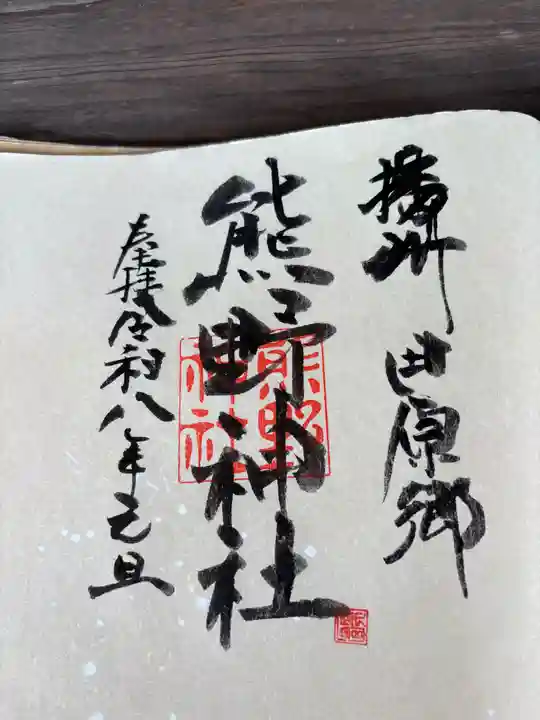 播州 田原郷
熊野神社
奉拝 令和八年元旦
熊野
神社